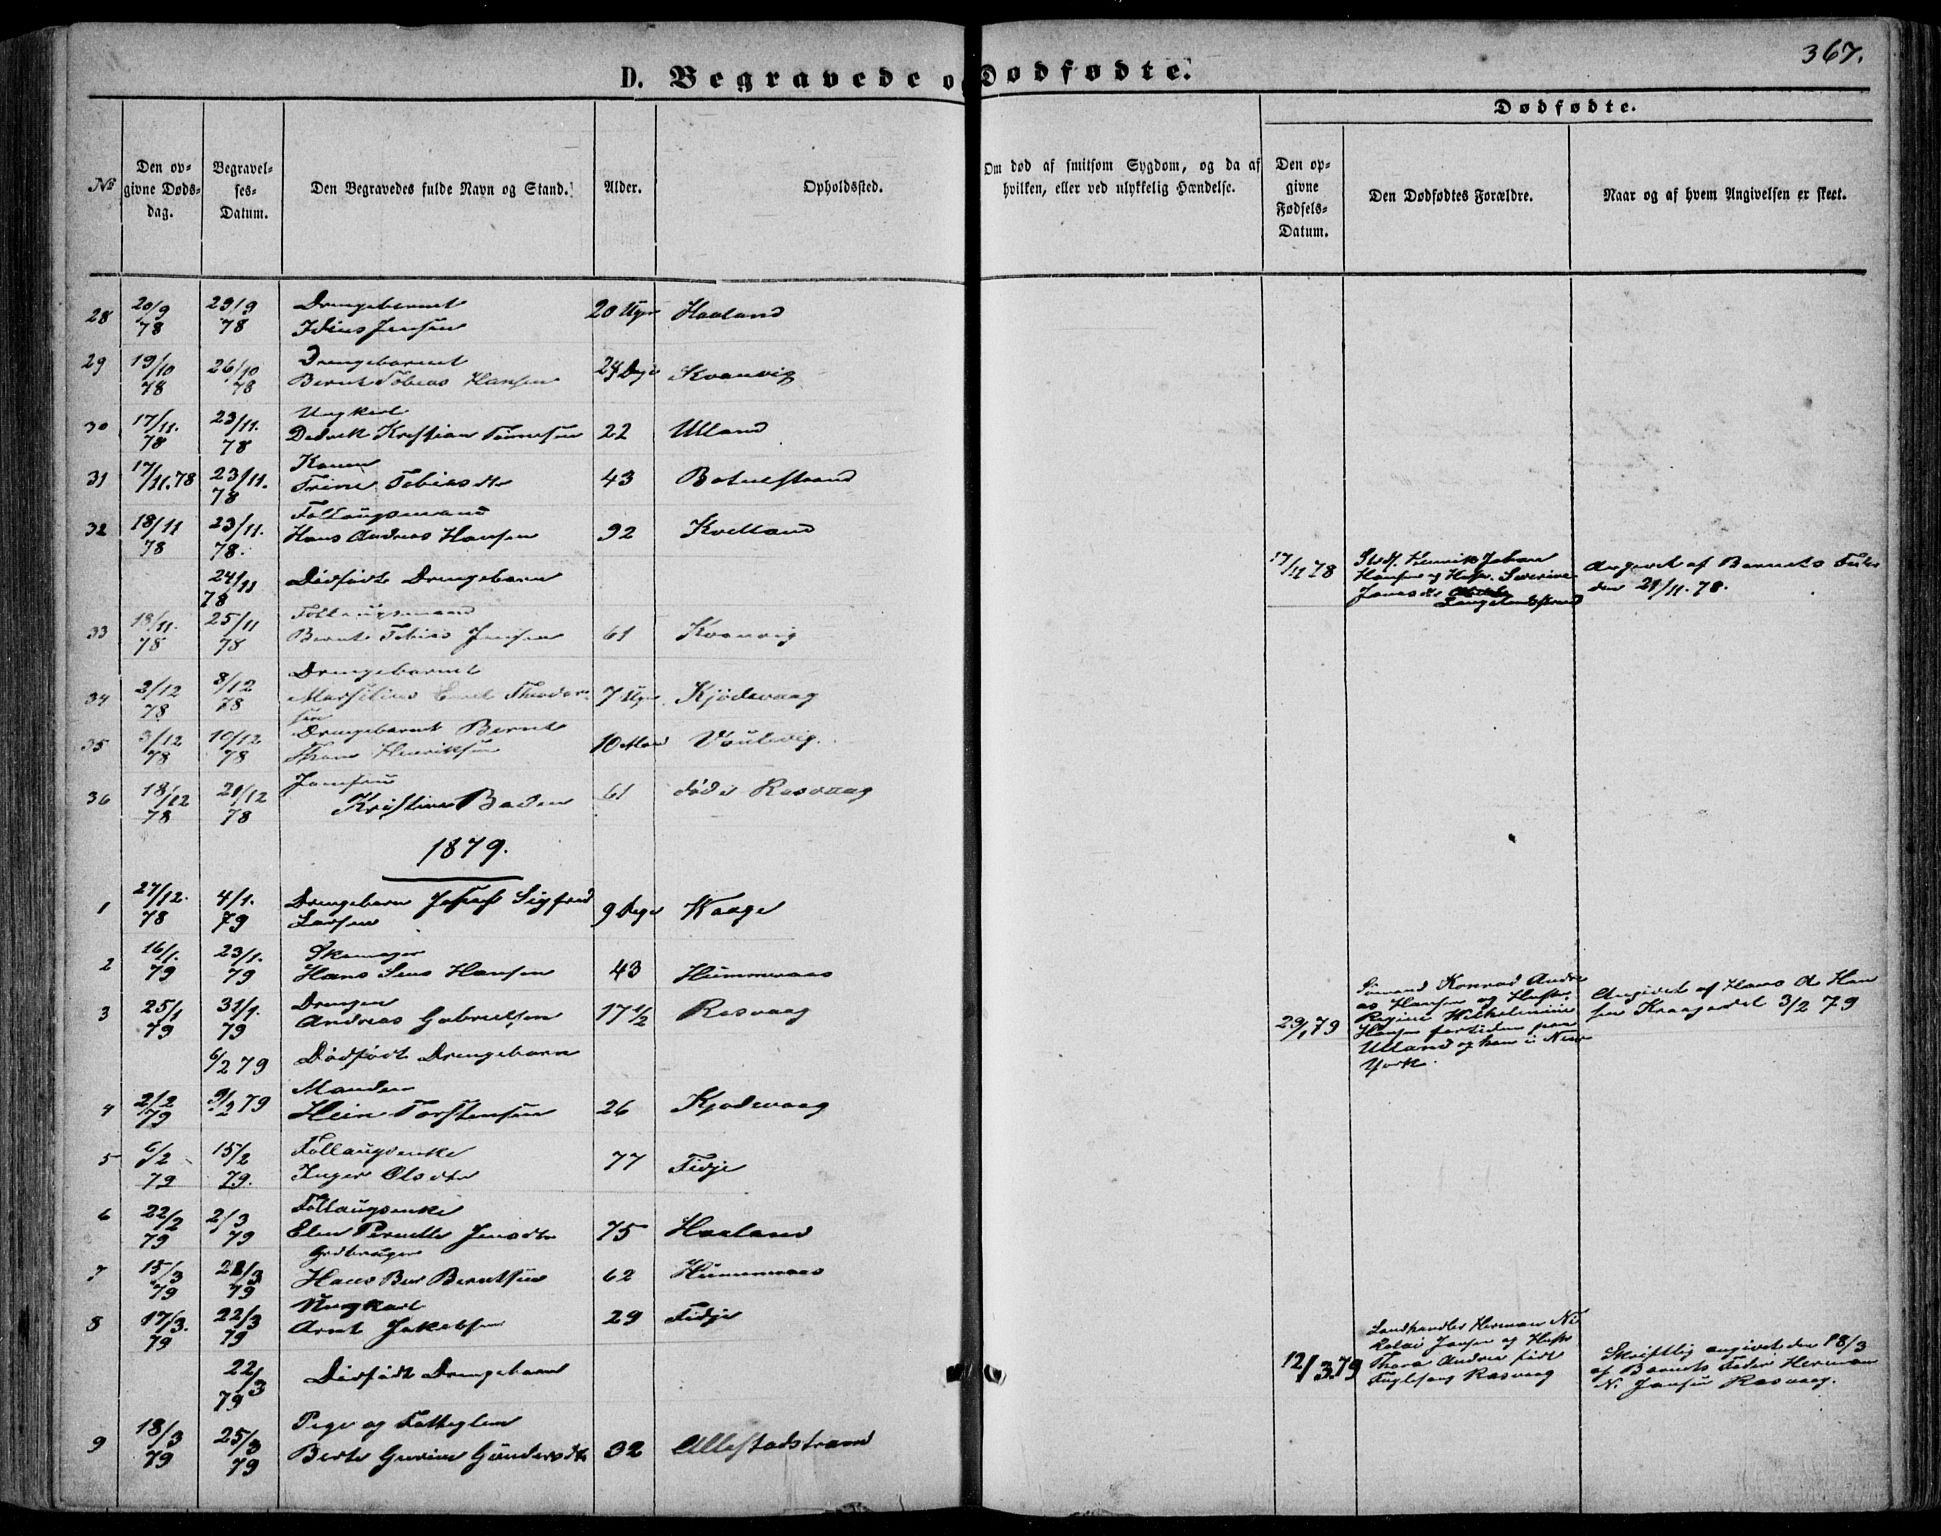 367.
D. Begravede og Dødfødte.
Dødfødte.
No
Den opgivne Dødsdag.
Begravelses-Datum.
Den Begravedes fulde Navn og Stand.
Alder.
Opholdssted.
Om død af smitsom Sygdom, og da af
hvilken, eller ved ulykkelig Hændelse.
Den opgivne Fødsels-Datum.
Den Dødfødtes Forældre.
Naar og af hvem Angivelsen er skeet.
28 20/9 78 23/9 78 Drengebarnet
Jensen 20 Uger Haaland
29 19/10 78 26/10 78 Drengebarnet
Bernt Tobias Hansen Dage Kvanvig
30 17/11. 78 23/11. 78 Ungkarl
Kristian Tønnesen 22 Ulland
31 17/11.78 23/11. 78 Konen
Trine Tobiasdtr 43 Botnestrand
32 18/11 78 23/11. 78. Follaugsmand
Hans Andreas Hansen 92 Kvelland
24/11 78 Dødfødte Drengebarn
17/11 78 Henrik Johan
Hansen og Hustr. Severine
Jonasdtr
Langelandstrand
Angivet af Barnets Fader
den 21/11. 78.
33 18/11. 78 25/11 78 Follaugsmand
Bernt Tobias Jensen 61 Kvanvig
34 2/12 78 8/12 78 Drengebarnet
Marsilius Theodor
sen 7 Uger Kjødevaag
35 3/12 78 10/12 78 Drengebarnet Bernt
Thom Henriksen 10 Mand
36 18/12 78 21/12 78 Jomfru
Kristine Baden 61 Rasvaag
1879.
1 27/12. 78 4/1. 79 Drengebarn Josef Sigfred
Larsen 9 Dage Kaage
2 16/1. 79 23/1. 79
Hans Hansen 43 Hummeraas
3 25/1 79 31/1. 79 Drengen
Andreas Gabrielsen 17 1/2 Rasvaag
6/2 79 Dødfødt Drengebarn
29/1 79 Sømand Konrad Andre
as Hansen og Hustr.
Regine Wilhelmine
Hansen fortiden paa
Ulland og han i New
York.
Angivet af Hans A. Han
sen 3/2 79
4 2/2 79 9/2 79 Manden
Hein Torstensen 26 Kjødevaag
5 6/2 79 15/2 79. Follaugsenke
Inger Olsdtr 77 Fidje
6 22/2 79 2/3 79 Follaugsenke
Elen Pernille Jensdtr 75 Haaland
7 15/3 79 21/3 79 Grdbruger
Hans Berntsen 62 Hummeraas
8 17/3. 79 22/3 79 Ungkarl
Arnt Jakobsen 29 Fidje
22/3 79 Dødfødt Drengebarn
12/3 79 Landhandler Herman Ni
kolai Jansen og Hustr
Thora Andrea født
Fuglesang Rasvaag
Skriftlig angivet den 18/3
af Barnets Fader Herman
N. Jansen Rasvaag.
9 18/3 79 25/3 79 Pige og Fattiglem
Berte Gurine Gundersdtr 32 Allestadstrand